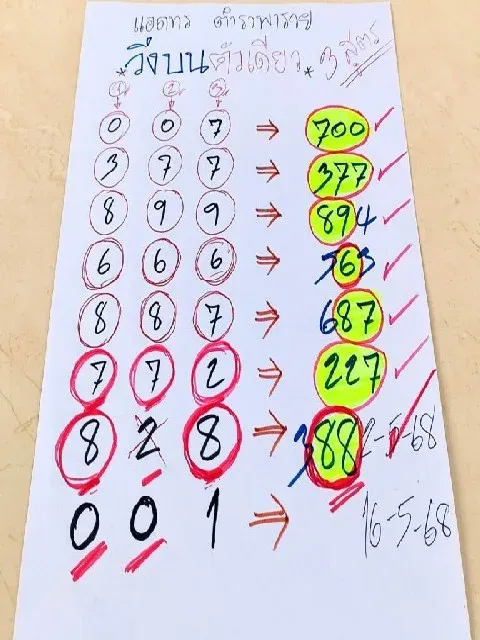 แอดทร ตำราพารวย
*วิ่งบนตัวเดียว* 3 สูตร
1 2 3
0 0 7 ⇒ 700 ✓
3 7 7 ⇒ 377 ✓
8 9 9 ⇒ 894 ✓
6 6 6 ⇒ 563 ✓
8 8 7 ⇒ 687 ✓
7 7 2 ⇒ 227 ✓
8 2 8 ⇒ 388 2-5-68
0 0 1 ⇒ 16-5-68